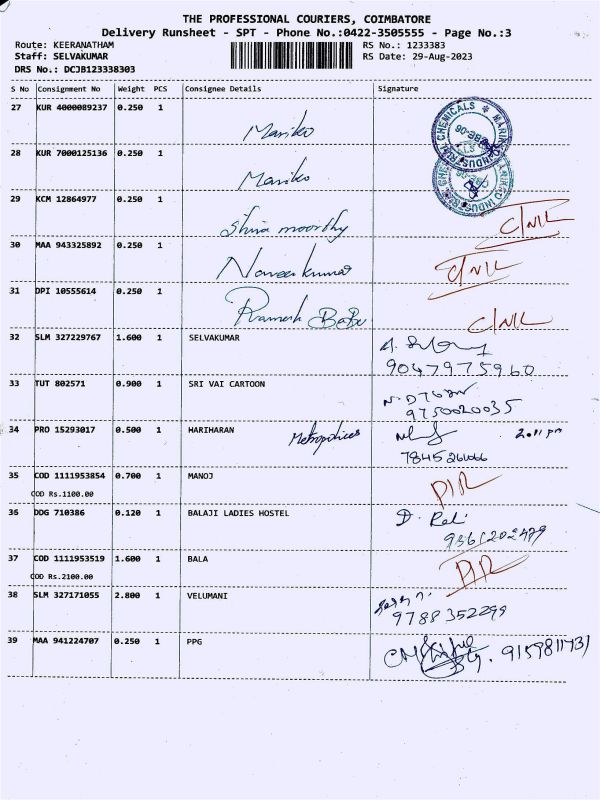 THE PROFESSIONAL COURIERS, COIMBATORE
Delivery Runsheet - SPT - Phone No.:0422-3505555 - Page No.:3
Route: KEERANATHAM RS No.: 1233383
Staff: SELVAKUMAR RS Date: 29-Aug-2023
DRS No.: DCJB123338303
S No Consignment No Weight PCS Consignee Details Signature
27 KUR 4000089237 0.250 1
Mariko
28 KUR 7000125136 0.250 1
Mariko
29 KCM 12864977 0.250 1
Shiva moorthy C/NIL
30 MAA 943325892 0.250 1
Naveen kumar C/NIL
31 DPI 10555614 0.250 1
Ramesh BaBu C/NIL
32 SLM 327229767 1.600 1 SELVAKUMAR
9047975960
33 TUT 802571 0.900 1 SRI VAI CARTOON
9750020035
34 PRO 15293017 0.500 1 HARIHARAN
35 COD 1111953854 0.700 1 MANOJ
COD Rs.1100.00
36 DDG 710386 0.120 1 BALAJI LADIES HOSTEL
37 COD 1111953519 1.600 1 BALA
COD Rs.2100.00
38 SLM 327171055 2.800 1 VELUMANI
9788352299
39 MAA 941224707 0.250 1 PPG